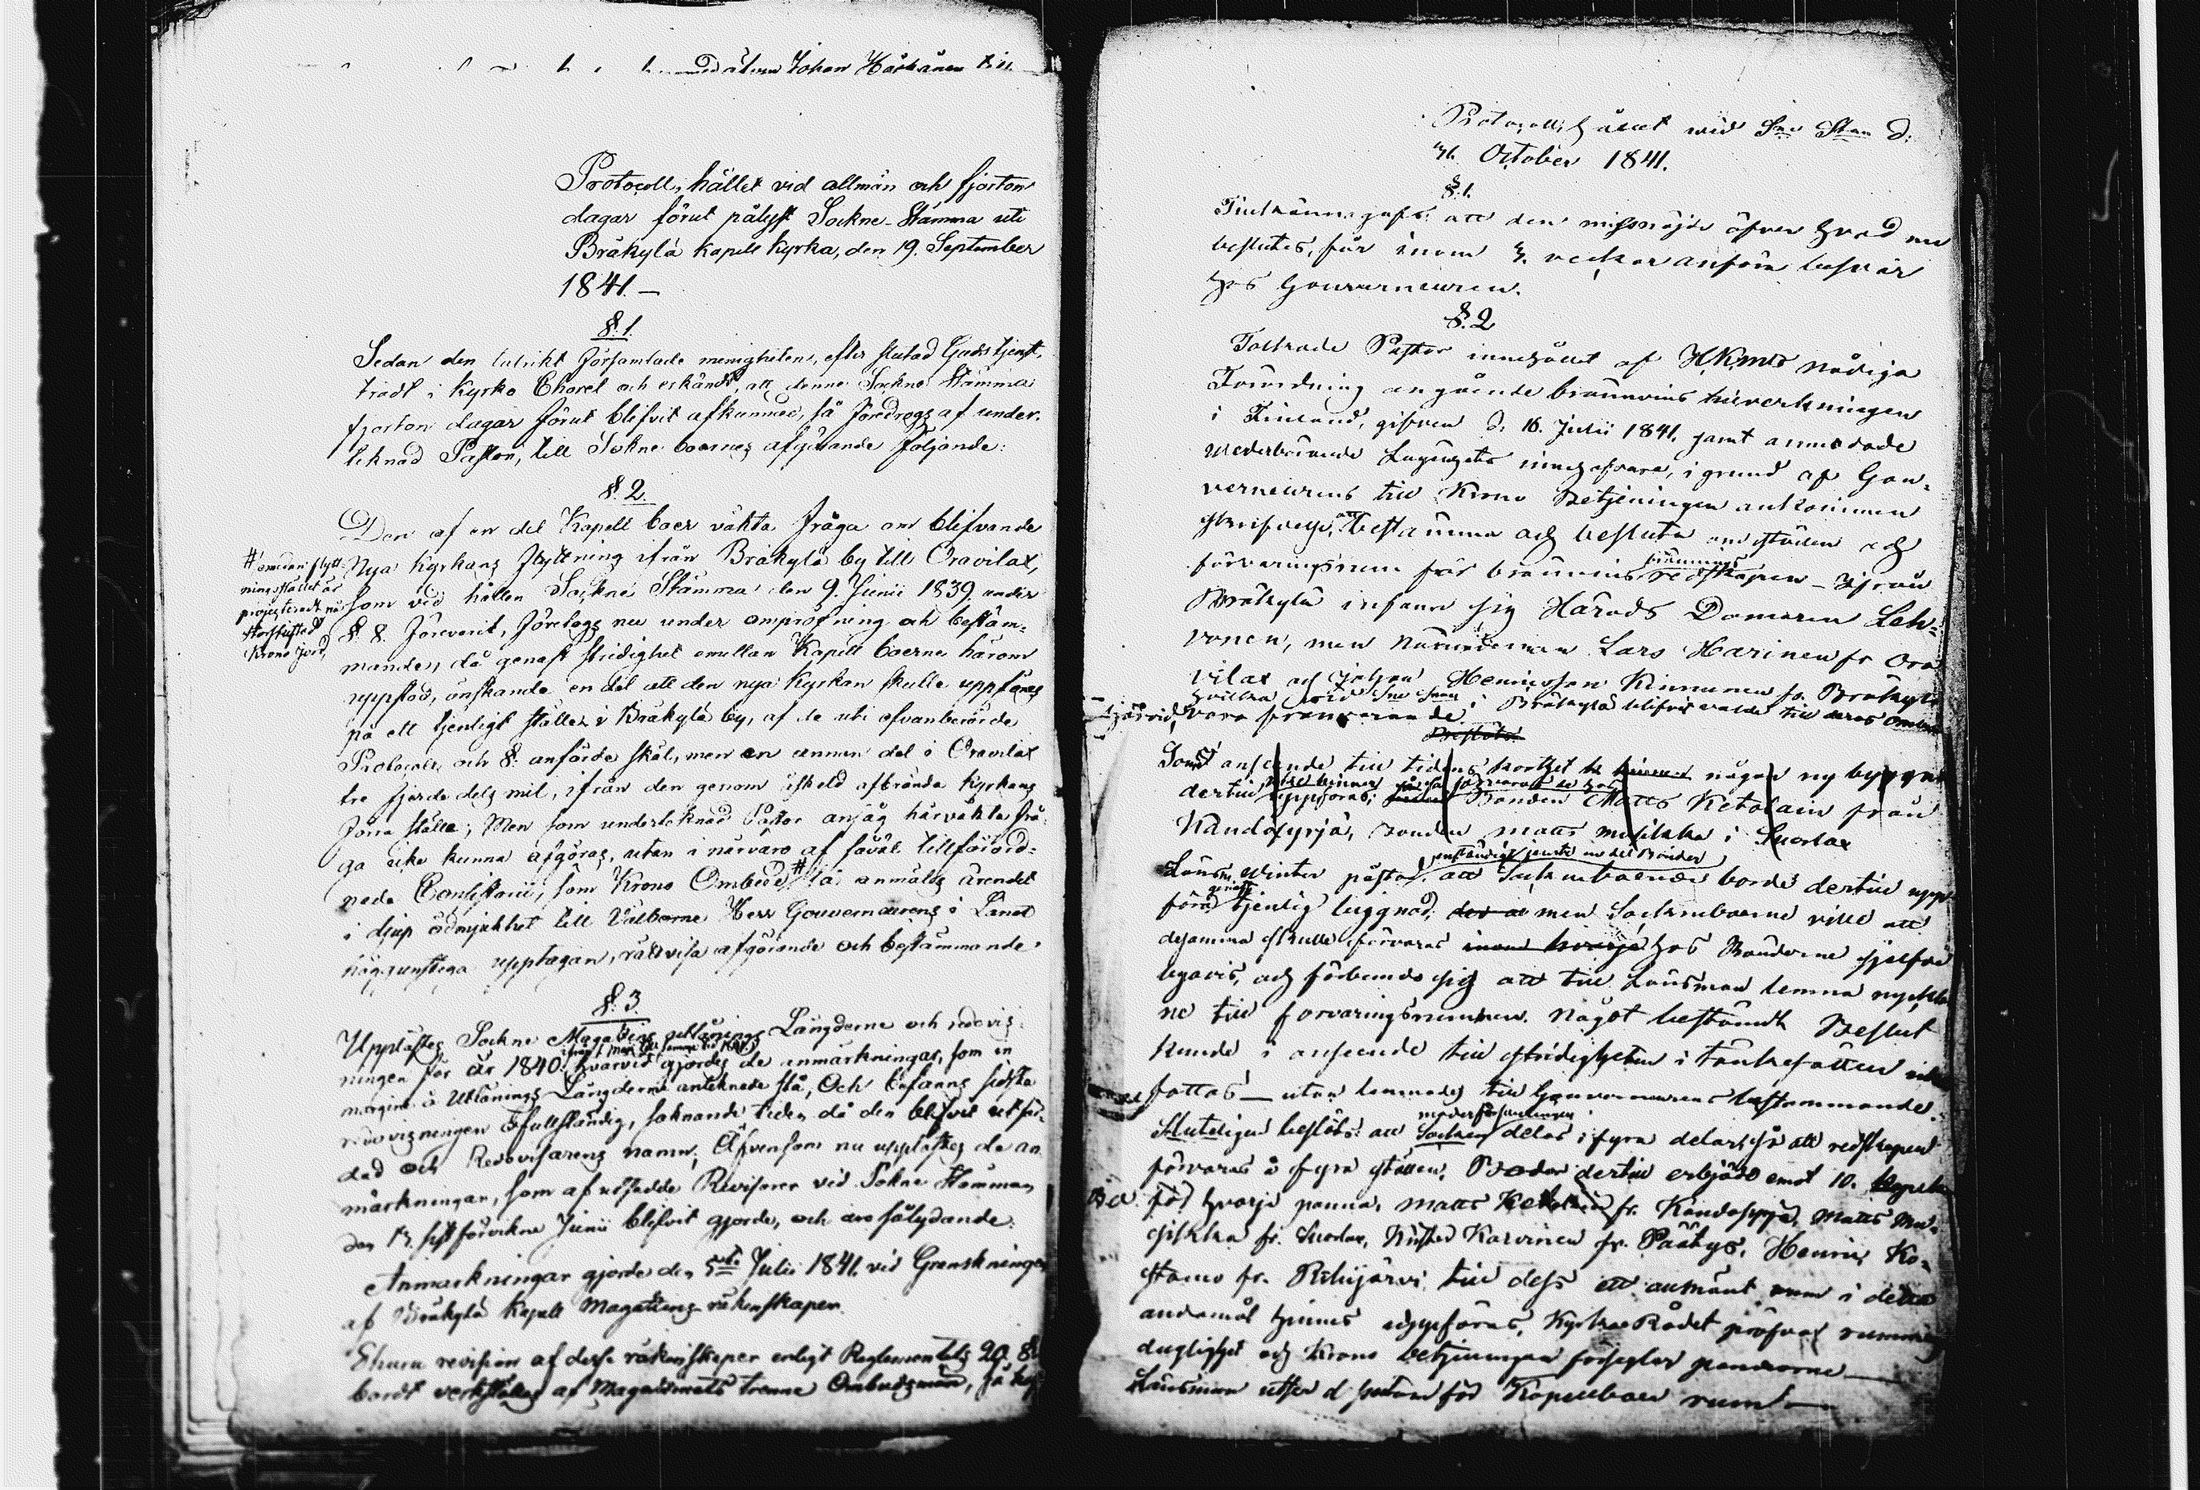 Johan Hårkänen till
Protocoll, hållet vid allmän och fjorton
dagar förut pålyst Sockne-Stämma uti
Bräkylä kapell kyrka, den 19. September
1841.—
§. 1.
Sedan den talrikt församlade menigheten, efter slutad Gudstjenst,
trädt i kyrko Choret och erkändt, att denna Sockne Stämma
fjorton dagar förut blifvit afkunnad, så föredrogs af under-
teknad Pastor, till Sokne boernes afgörande följande:
§. 2.
Den af en del Kapell boer väkta fråga om blifvande
Nya kyrkans flyttning ifrån Bräkylä by till Oravilax,
som vid hållen Sockne Stämma den 9. Junii 1839 under
§. 8. förevarit, företogs nu under ompröfning och bestäm-
mande, då genast stridighet emellan Kapell boerne härom
uppstod, önskande en del att den nya kyrkan skulle uppföras
på ett tjenligt ställe i Bräkylä by, af de uti ofvanberörde
Protocoll och §. anförde skäl, men en annan del i Oravilax
tre fjerdedels mil, ifrån den genom åskeld afbrända kyrkans
förra ställe; Men som underteknad Pastor ansåg härväkta frå-
ga icke kunna afgöras, utan i närvaro af såväl tillförord-
nade Consistorii, som Krono Ombud # så anmäldes ärendet
i djup ödmjukhet till Välborne Herr Gouverneurens i Länet
höggunstiga upptagan, rättvisa afgörande och bestämmande.
# emedan flytt-
ningsstället är
projecteradt på
storskiftad
Krono jord,
§. 3.
Upplästes Sockne Magasins utlånings Längderne och redovis-
ningen för år 1840. hvarvid gjordes de anmärkningar, som in
margine å Utlånings Längderna anteknade stå, Och befanns sidsta
redovisningen ofullständig, saknande tiden då den blifvit afslu-
tad och Redovisarens namn; Äfvensom nu upplästes de an-
märkningar, som af utsedde Revisorer vid Sokne Stämman
den 13. sistförvikne Junii blifvit gjorde, och äro sålydande:
Anmärkningar gjorde den 5te Julii 1841. vid Granskningen
af Bräkylä Kapell Magasins räkenskaper.
Ehuru revision af desse räkenskaper enligt Reglementets 20. §.
bordt verkställas af Magasinets trenne Ombudsmän, så har
Protocoll, hållet wid Sne Stan d.
October 1841.
§. 1.
Tillkännagafs: att den missnöjde öfver hvad nu
beslutes, får inom 4. veckor anföra besvär
hos Gouverneuren.
§. 2
Föredrade Pastor innehållet af HKMts nådiga
Förordning angående brännvins tillverkningen
i Finland, gifven d. 16. Julii 1841. samt anmodade
wederbörande Lägenhets innehafvare, i grund af Gou-
verneurens till Krono Betjeningen ankommen
skrifvelse, att bestämma och besluta om ställen och
förvaringsrum för brännvins redskapen — Ifrån
Bräkylä infann sig Härads Domaren Leh-
vonen, men Nämndeman Lars Harinen fr. Ora
vilax och Johan Henricsson Kinnunen fr. Bräkylä
hvilka wid Sne Stan i Bräkylä blifvit valde till deras ombud
voro frånvarande.
I anseende till tidens korthet någon ny byggnad
dertill uppföras; Bonden Matts Ketolain från
Kandosyrjä, bonden Matts Musikka i Suorlax
Länsm. Winter påstod att Socknboerne borde dertill upp
föra tjenlig byggnad, men Socknboerne ville att
desamma skulle förvaras hos Bönderne sjelfve
byavis, och förbundo sig att till Länsman lemna nyckla
ne till förvaringsrummen. Något bestämdt Beslut
kunde i anseende till stridigheten i tänkesätten icke
fattas — utan lemnades till Gouverneurens bestämmande.
Slutligen beslöts: att Socken delas i fyra delar, så att redskapen
förvaras å fyra ställen. Bodar dertill erbjöd emot 10. kopek
för hvarje panna, Matts Ketolain fr. Kandosyrjä, Matts Mu-
sikka fr. Suorlax, Krister Karvinen fr. Pääkys, Henric Ko-
stamo fr. Riihijärvi till dess att allmänt rum i detta
andamål hinnes uppföras, Kyrko Rådet pröfvar rummens
duglighet och Krono betjeningen förseglar pannorne —
Länsman utser d för Kapellboer rum —